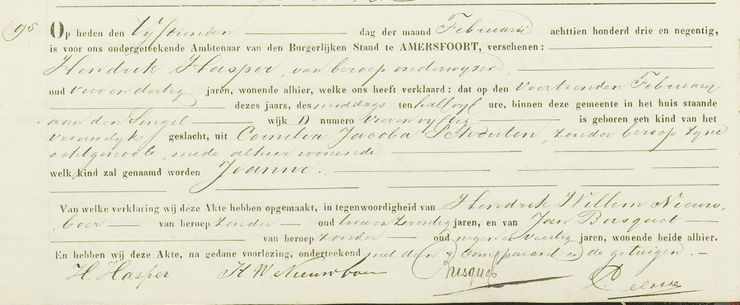 95
Op heden den Vijftienden dag der maand Februarij achttien honderd drie en negentig,
is voor ons ondergeteekende Ambtenaar van den Burgerlijken Stand te AMERSFOORT, verschenen:
Hendrik Hasper, van beroep onderwijzer,
oud vier en dertig jaren, wonende alhier, welke ons heeft verklaard: dat op den veertienden Februarij
dezes jaars, des middags ten half vijf ure, binnen deze gemeente in het huis staande
aan den Singel wijk D numero vier en vijftig is geboren een kind van het
vrouwelijke geslacht, uit Cornelia Jacoba Schouten, zonder beroep zijne
echtgenoote, mede alhier wonende
welk kind zal genaamd worden Joanne.
Van welke verklaring wij deze Akte hebben opgemaakt, in tegenwoordigheid van Hendrik Willem Nieuw-
boer van beroep zonder oud twee en zeventig jaren, en van Jan Busquet
van beroep zonder oud negen en veertig jaren, wonende beide alhier.
En hebben wij deze Akte, na gedane voorlezing, onderteekend met den comparant en de getuigen.
H. Hasper H W Nieuwboer Busquet